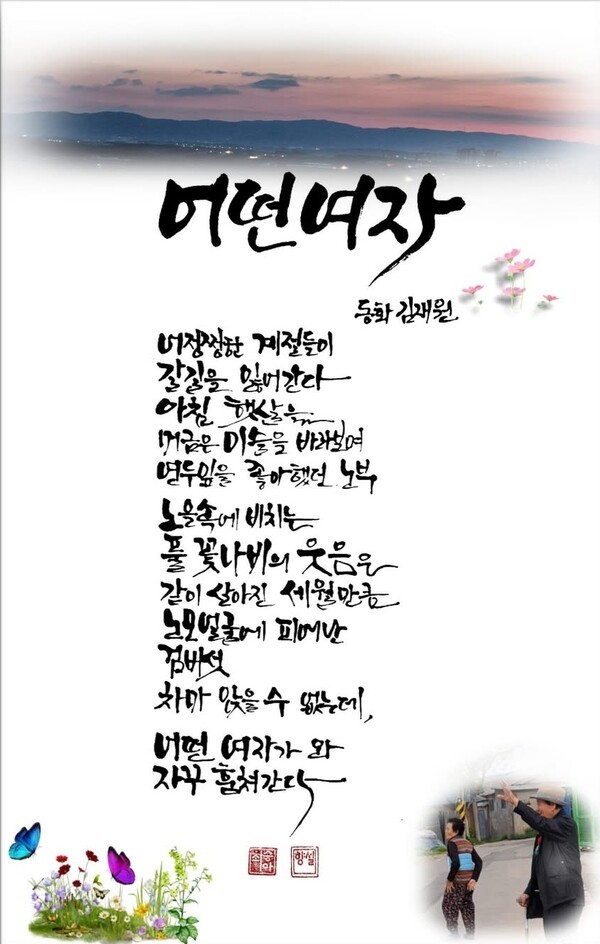 어떤 여자
동화 김재원
어정쩡한 계절들이
갈길을 잃어간다
아침 햇살을
머금은 이슬을 바라보며
연두잎을 좋아했던 노부
노을속에 비치는
풀 꽃나비의 웃음은
같이 살아진 세월만큼
노모얼굴에 피어난
검버섯
차마 앉을수 없는데,
어떤 여자가 와
자꾸 훔쳐간다
향설